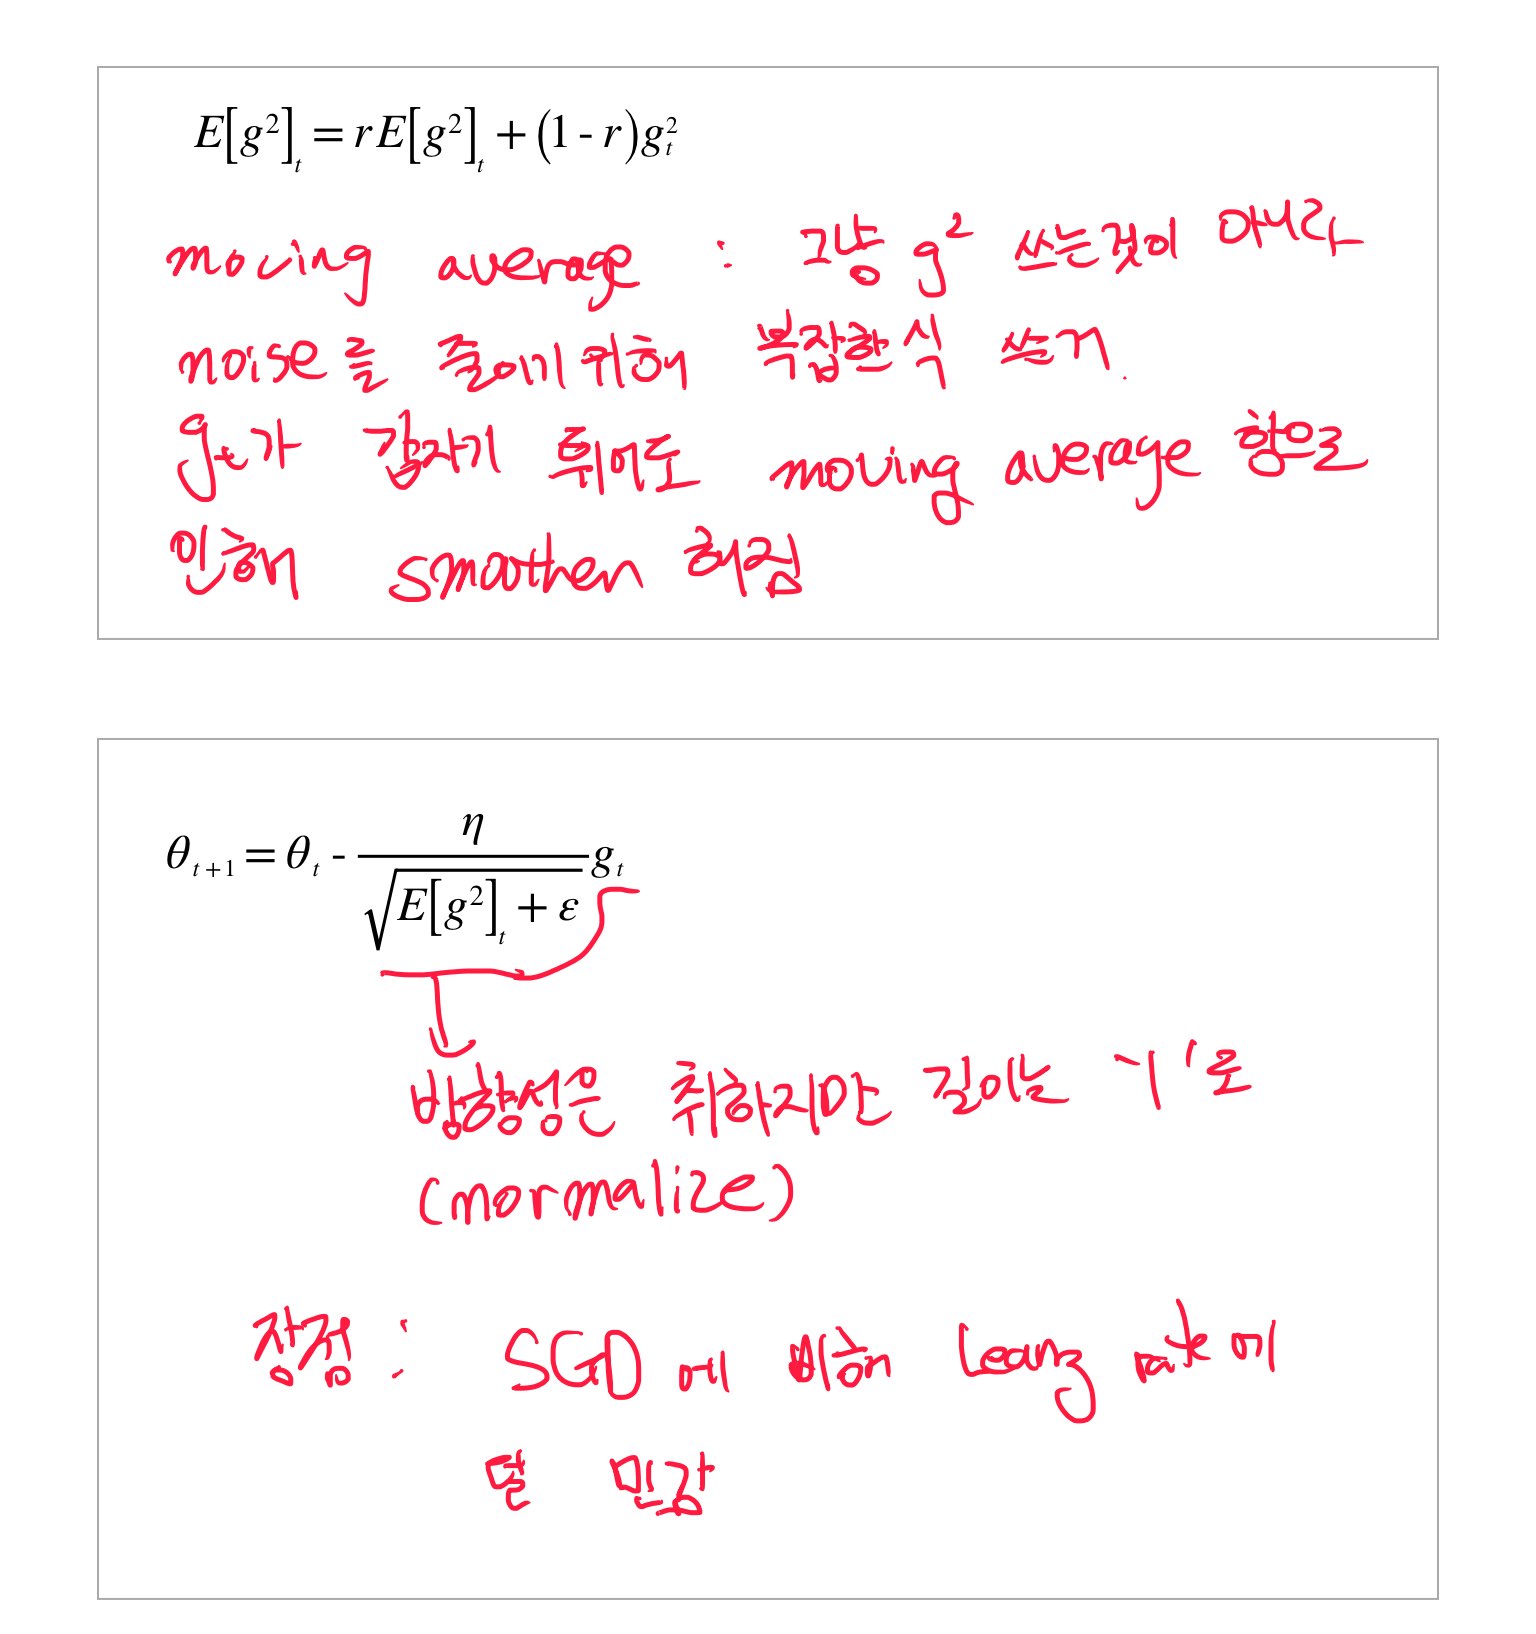 E[g²]ₜ = rE[g²]ₜ + (1 - r)gₜ²
moving average : 그냥 g² 쓰는것이 아니라
noise를 줄이기위해 복잡한 식 쓰거.
gₜ가 갑자기 튀어도 moving average 항으로
인해 smoothen 해짐
θₜ₊₁ = θₜ - η / √(E[g²]ₜ + ε) gₜ
방향성은 취하지만 길이는 '1'로
(normalize)
장점 : SGD에 비해 rate에
덜 민감